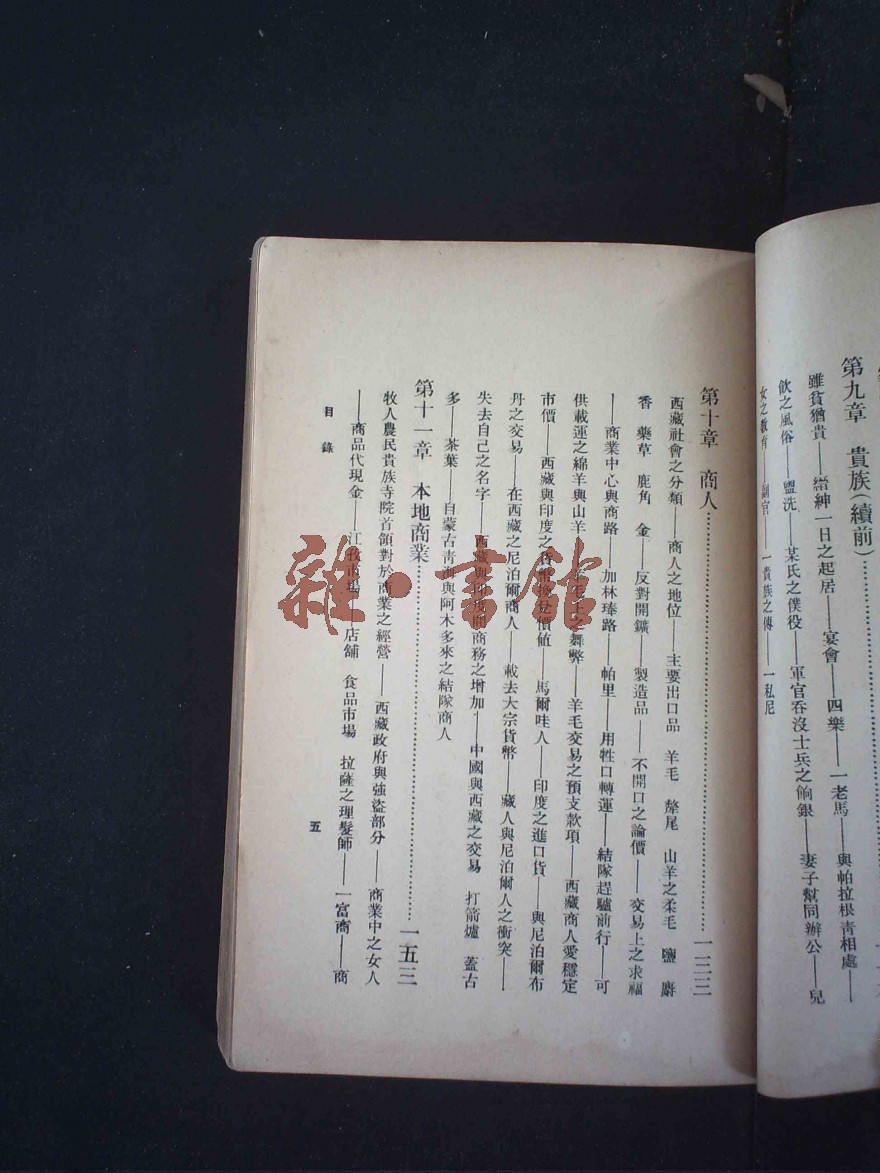 第九章　貴族(續前)
雖貧猶貴——縉紳一日之起居——宴會——四樂——一老馬——與帕拉根青相處——
飲之風俗——盥洗——某氏之僕役——軍官吞沒士兵之餉銀——妻子幫同辦公——兒
女之教育——一貴族之傳——一私尼
第十章　商人
西藏社會之分類——商人之地位——主要出口品　羊毛　犛尾　山羊之柔毛　鹽　麝
香　藥草　鹿角　金——反對開鑛——製造品——不開口之論價——交易上之求福
——商業中心與商路——加林琫路——帕里——用牲口轉運——結隊趕驢前行——可
供載運之綿羊與山羊——羊毛上之舞弊——羊毛交易之預支款項——西藏商人愛穩定
市價——西藏與印度之　價值——馬爾哇人——印度之進口貨——與尼泊爾布
丹之交易——在西藏之尼泊爾商人——載去大宗貨幣——藏人與尼泊爾人之衝突——
失去自己之名字——西藏與印度間商務之增加——中國與西藏之交易　打箭爐　蓋古
多——茶葉——自蒙古青海與阿木多來之結隊商人
第十一章　本地商業　一五三
牧人農民貴族寺院首領對於商業之經營——西藏政府與強盜部分——商業中之女人
——商品代現金——江孜市場——店舖　食品市場　拉薩之理髮師——一富商——商
目錄
五
雜·書館